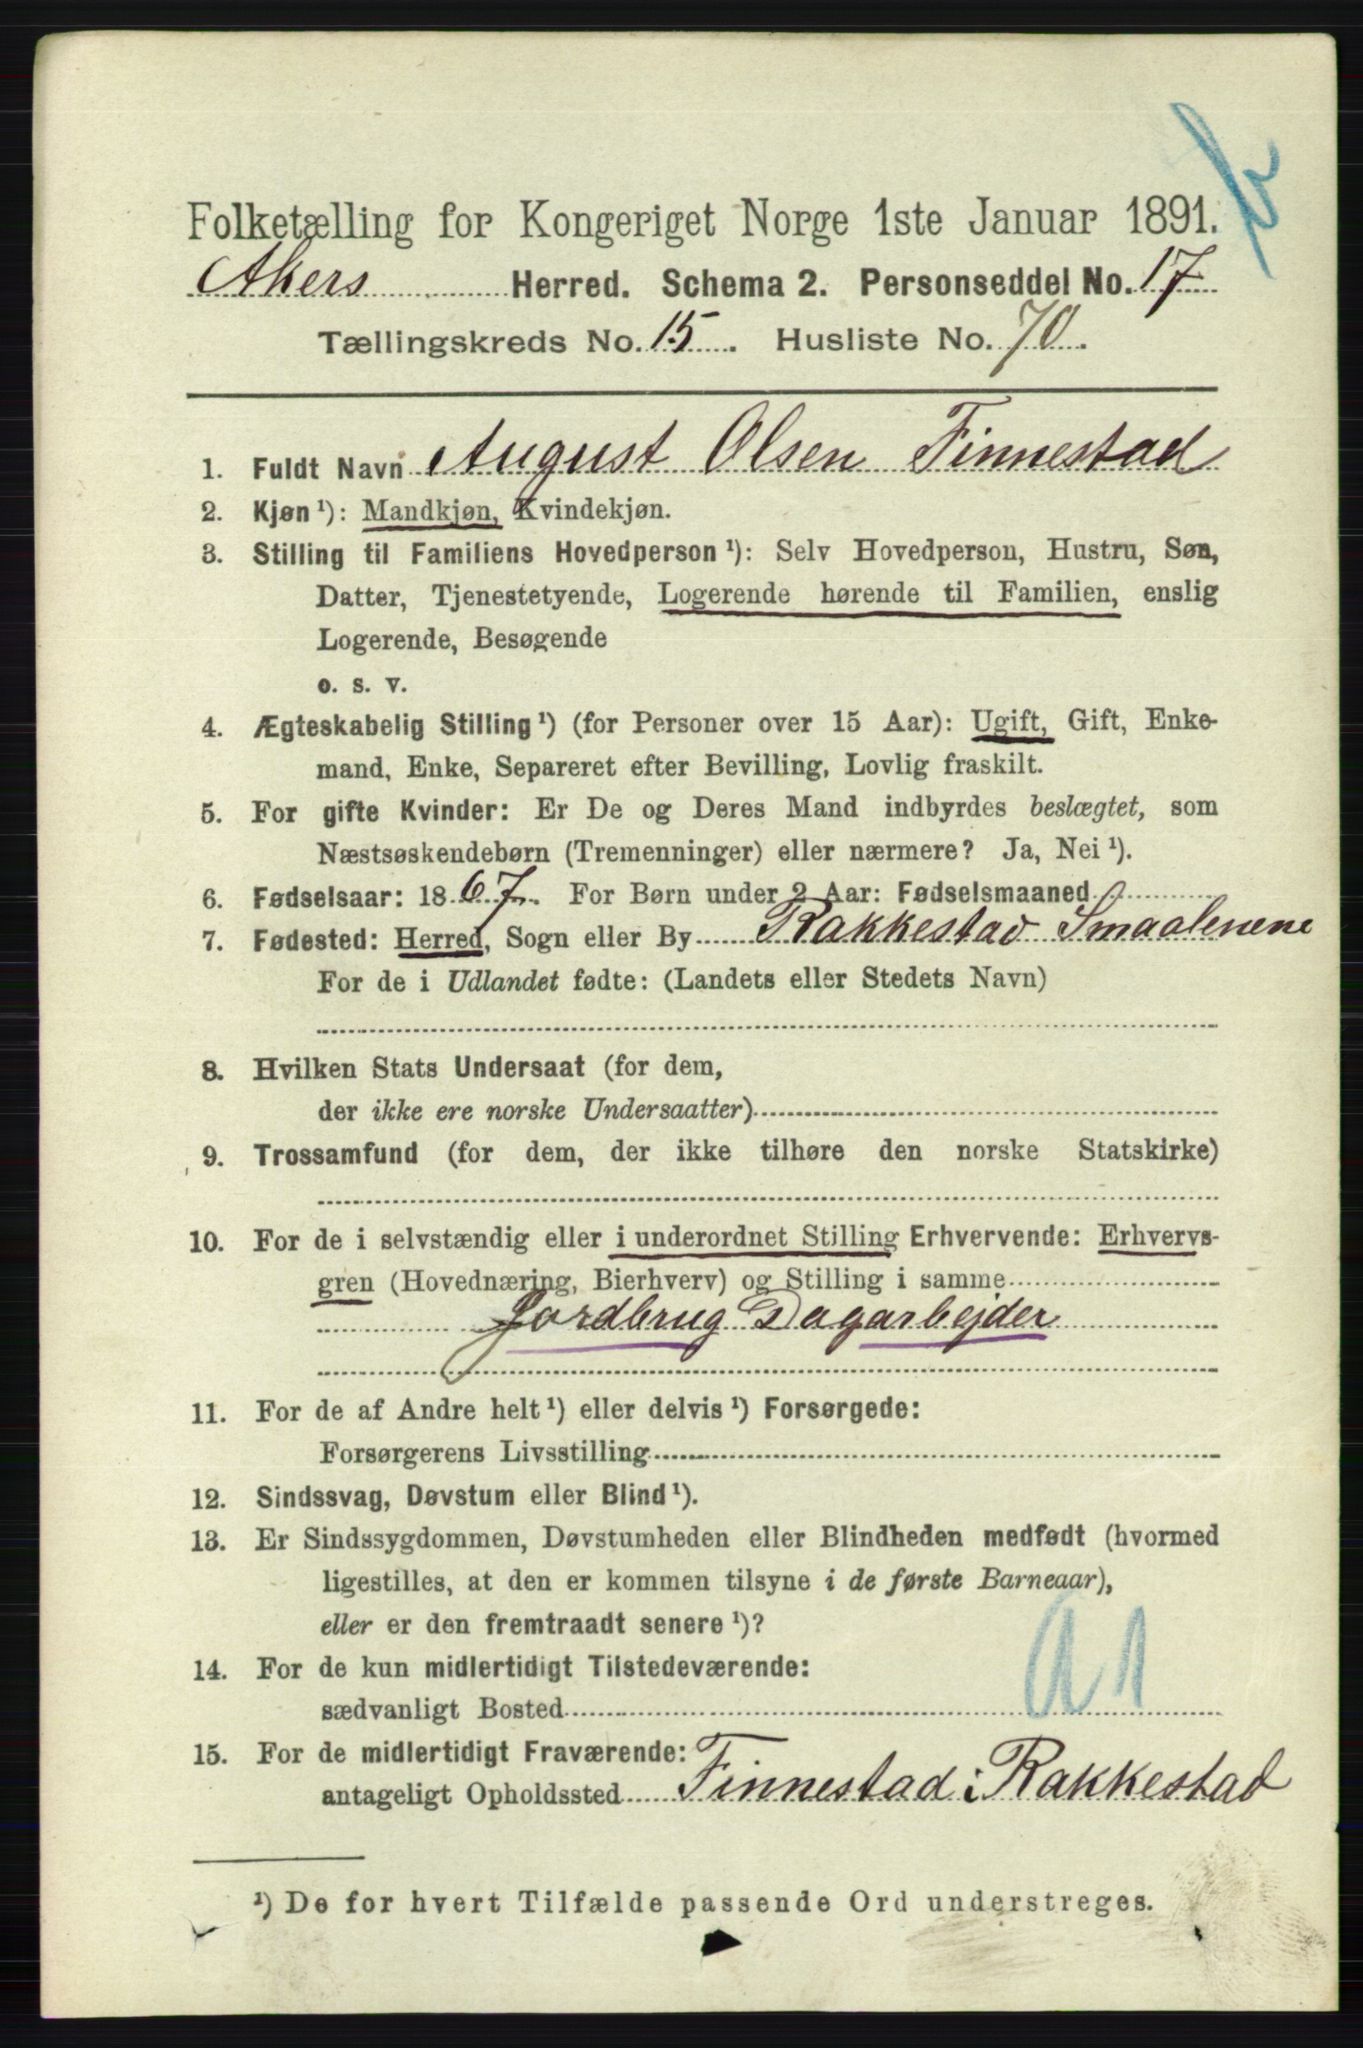 Folketælling for Kongeriget Norge 1ste Januar 1891.
Akers Herred. Schema 2. Personseddel No. 17
Tællingskreds No. 15. Husliste No. 70.
1. Fuldt Navn August Olsen Finnestad
2. Kjøn ¹): Mandkjøn, Kvindekjøn.
3. Stilling til Familiens Hovedperson ¹): Selv Hovedperson, Hustru, Søn,
Datter, Tjenestetyende, Logerende hørende til Familien, enslig
Logerende, Besøgende
o. s. v.
4. Ægteskabelig Stilling ¹) (for Personer over 15 Aar): Ugift, Gift, Enke-
mand, Enke, Separeret efter Bevilling, Lovlig fraskilt.
5. For gifte Kvinder: Er De og Deres Mand indbyrdes beslægtet, som
Næstsøskendebørn (Tremenninger) eller nærmere? Ja, Nei ¹).
6. Fødselsaar: 1867. For Børn under 2 Aar: Fødselsmaaned
7. Fødested: Herred, Sogn eller By Rakkestad Smaalenene
For de i Udlandet fødte: (Landets eller Stedets Navn)
8. Hvilken Stats Undersaat (for dem,
der ikke ere norske Undersaatter)
9. Trossamfund (for dem, der ikke tilhøre den norske Statskirke)
10. For de i selvstændig eller i underordnet Stilling Erhvervende: Erhvervs-
gren (Hovednæring, Bierhverv) og Stilling i samme
Jordbrug Dagarbejder
11. For de af Andre helt ¹) eller delvis ¹) Forsørgede:
Forsørgerens Livsstilling
12. Sindssvag, Døvstum eller Blind ¹).
13. Er Sindssygdommen, Døvstumheden eller Blindheden medfødt (hvormed
ligestilles, at den er kommen tilsyne i de første Barneaar),
eller er den fremtraadt senere ¹)?
14. For de kun midlertidigt Tilstedeværende:
sædvanligt Bosted
a 1
15. For de midlertidigt Fraværende:
antageligt Opholdssted Finnestad i Rakkestad
¹) De for hvert Tilfælde passende Ord understreges.